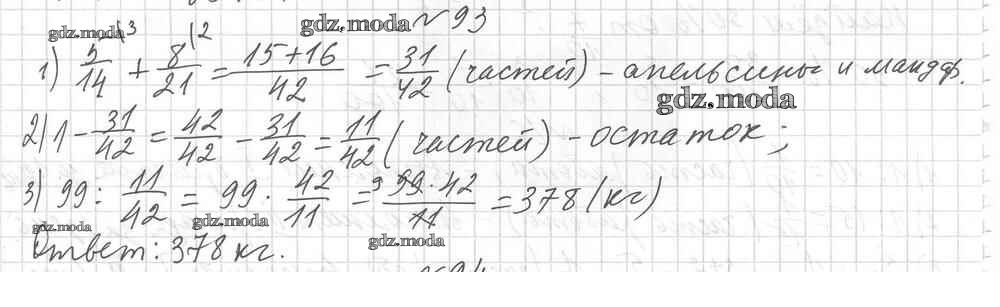 gdz.moda № 93
gdz.moda
1) 5/14 |3 + 8/21 |2 = 15+16/42 = 31/42 (частей) – апельсины и мандар.
gdz.moda
2) 1 – 31/42 = 42/42 – 31/42 = 11/42 (частей) – остаток;
3) 99 : 11/42 = 99 · 42/11 = 9 99·42/11 = 378 (кг)
gdz.moda gdz.moda
gdz.moda
Ответ: 378 кг.